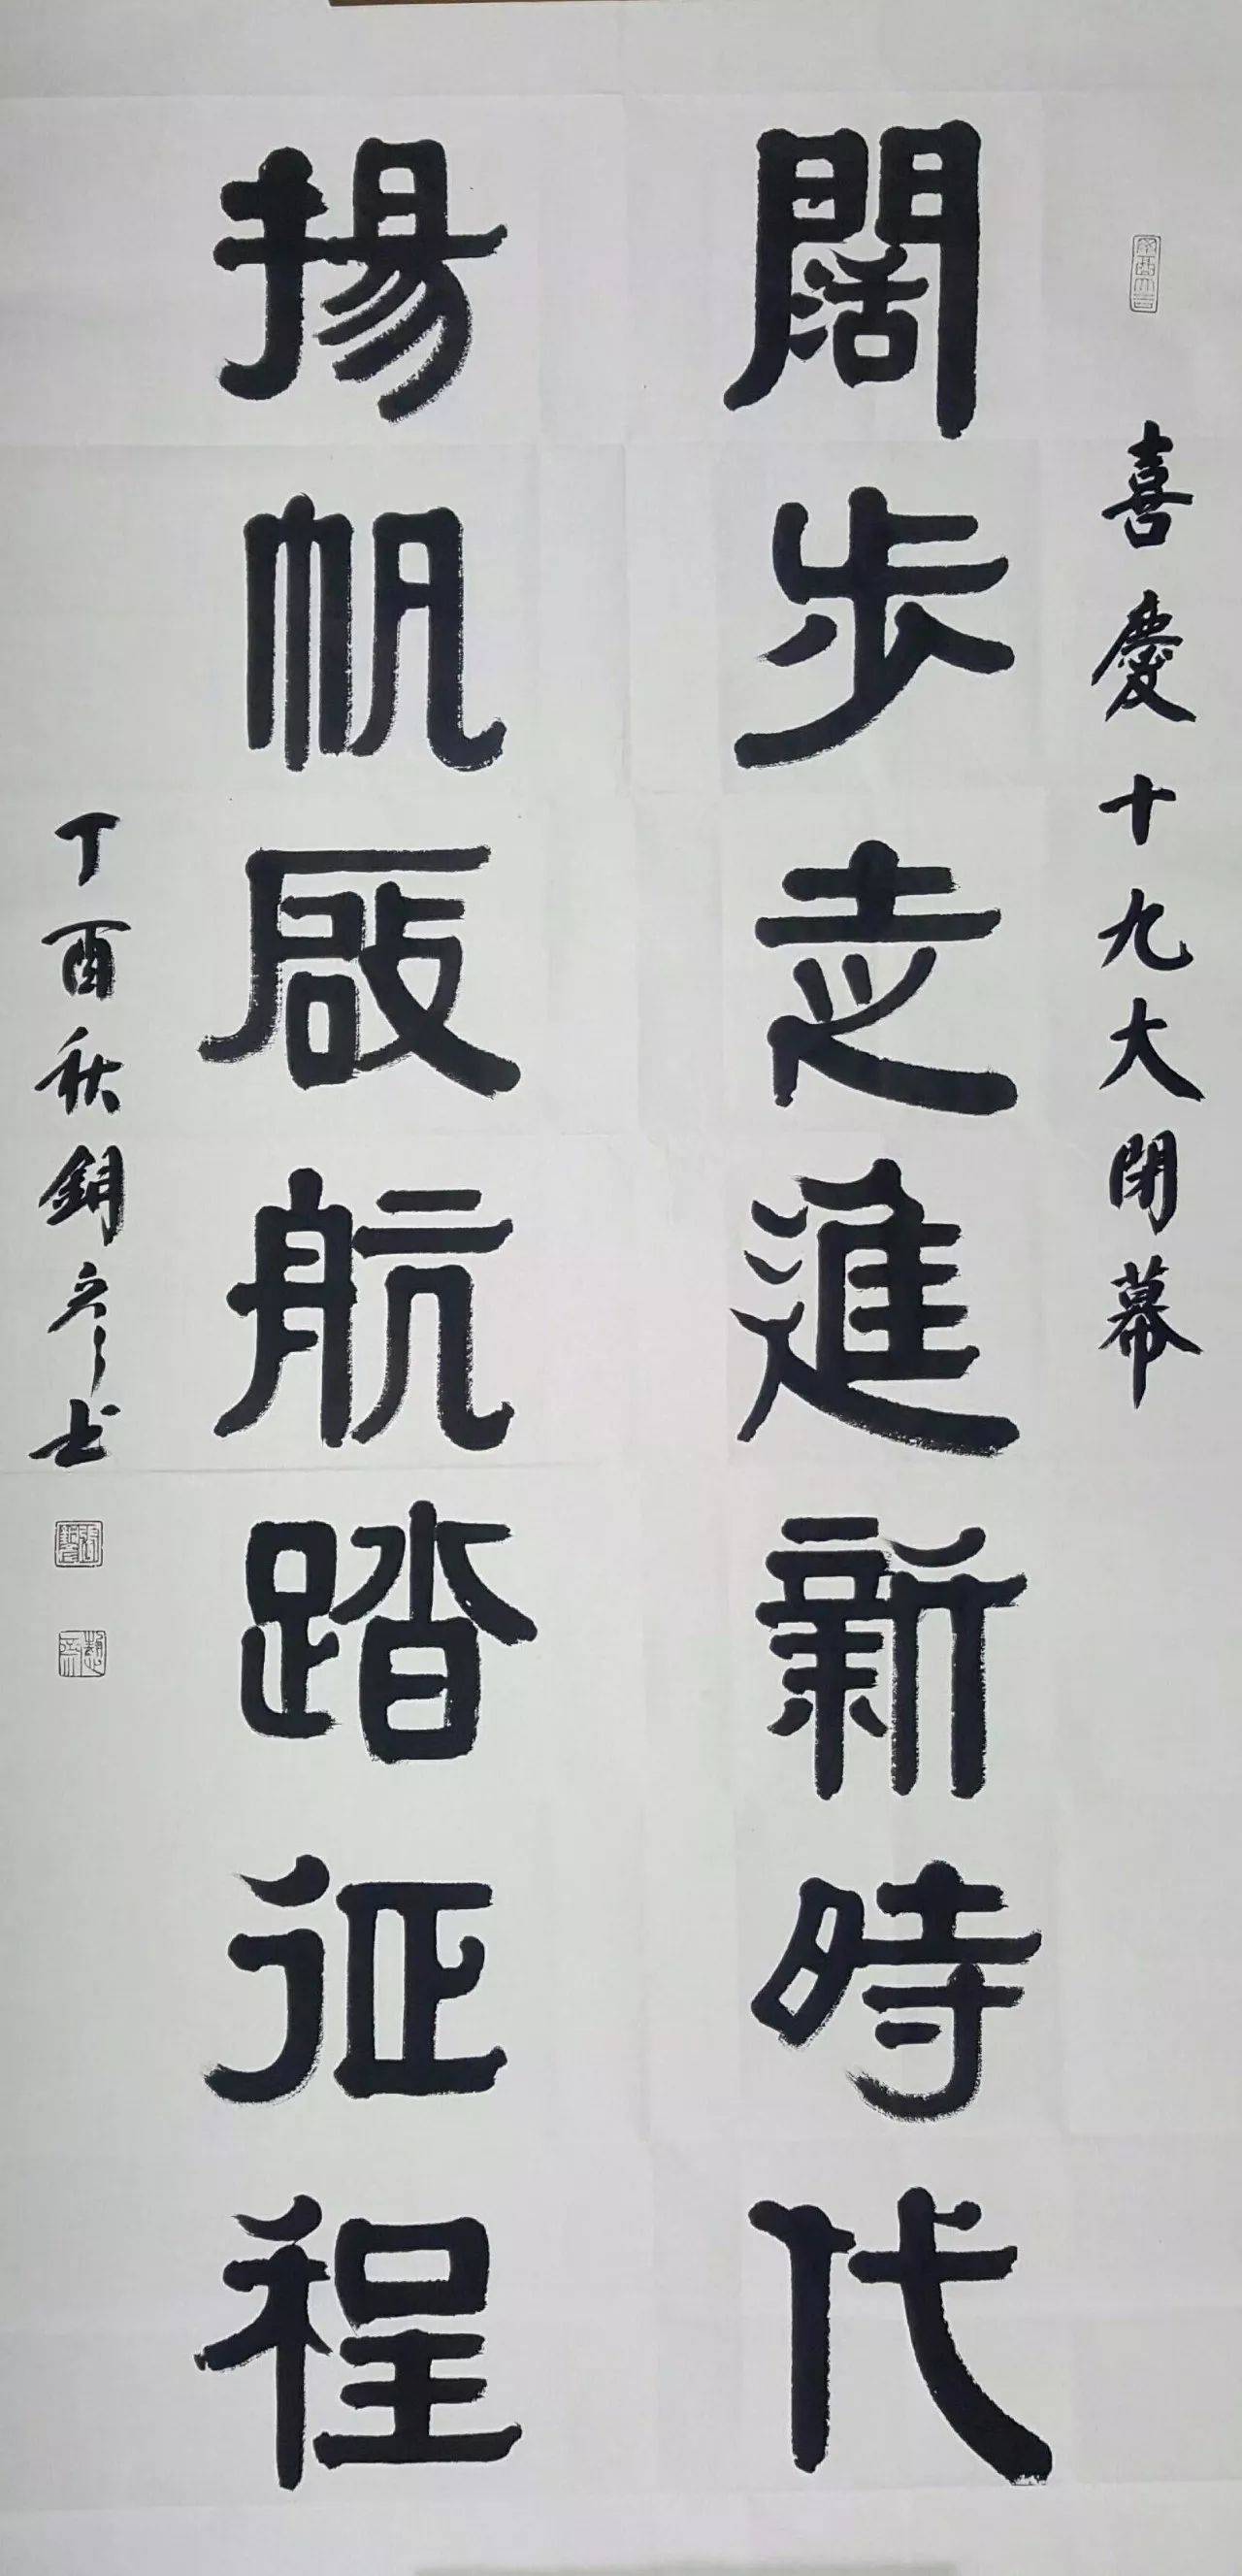 喜慶十九大閉幕
闊步走進新時代
揚帆啟航踏征程
丁酉秋銅